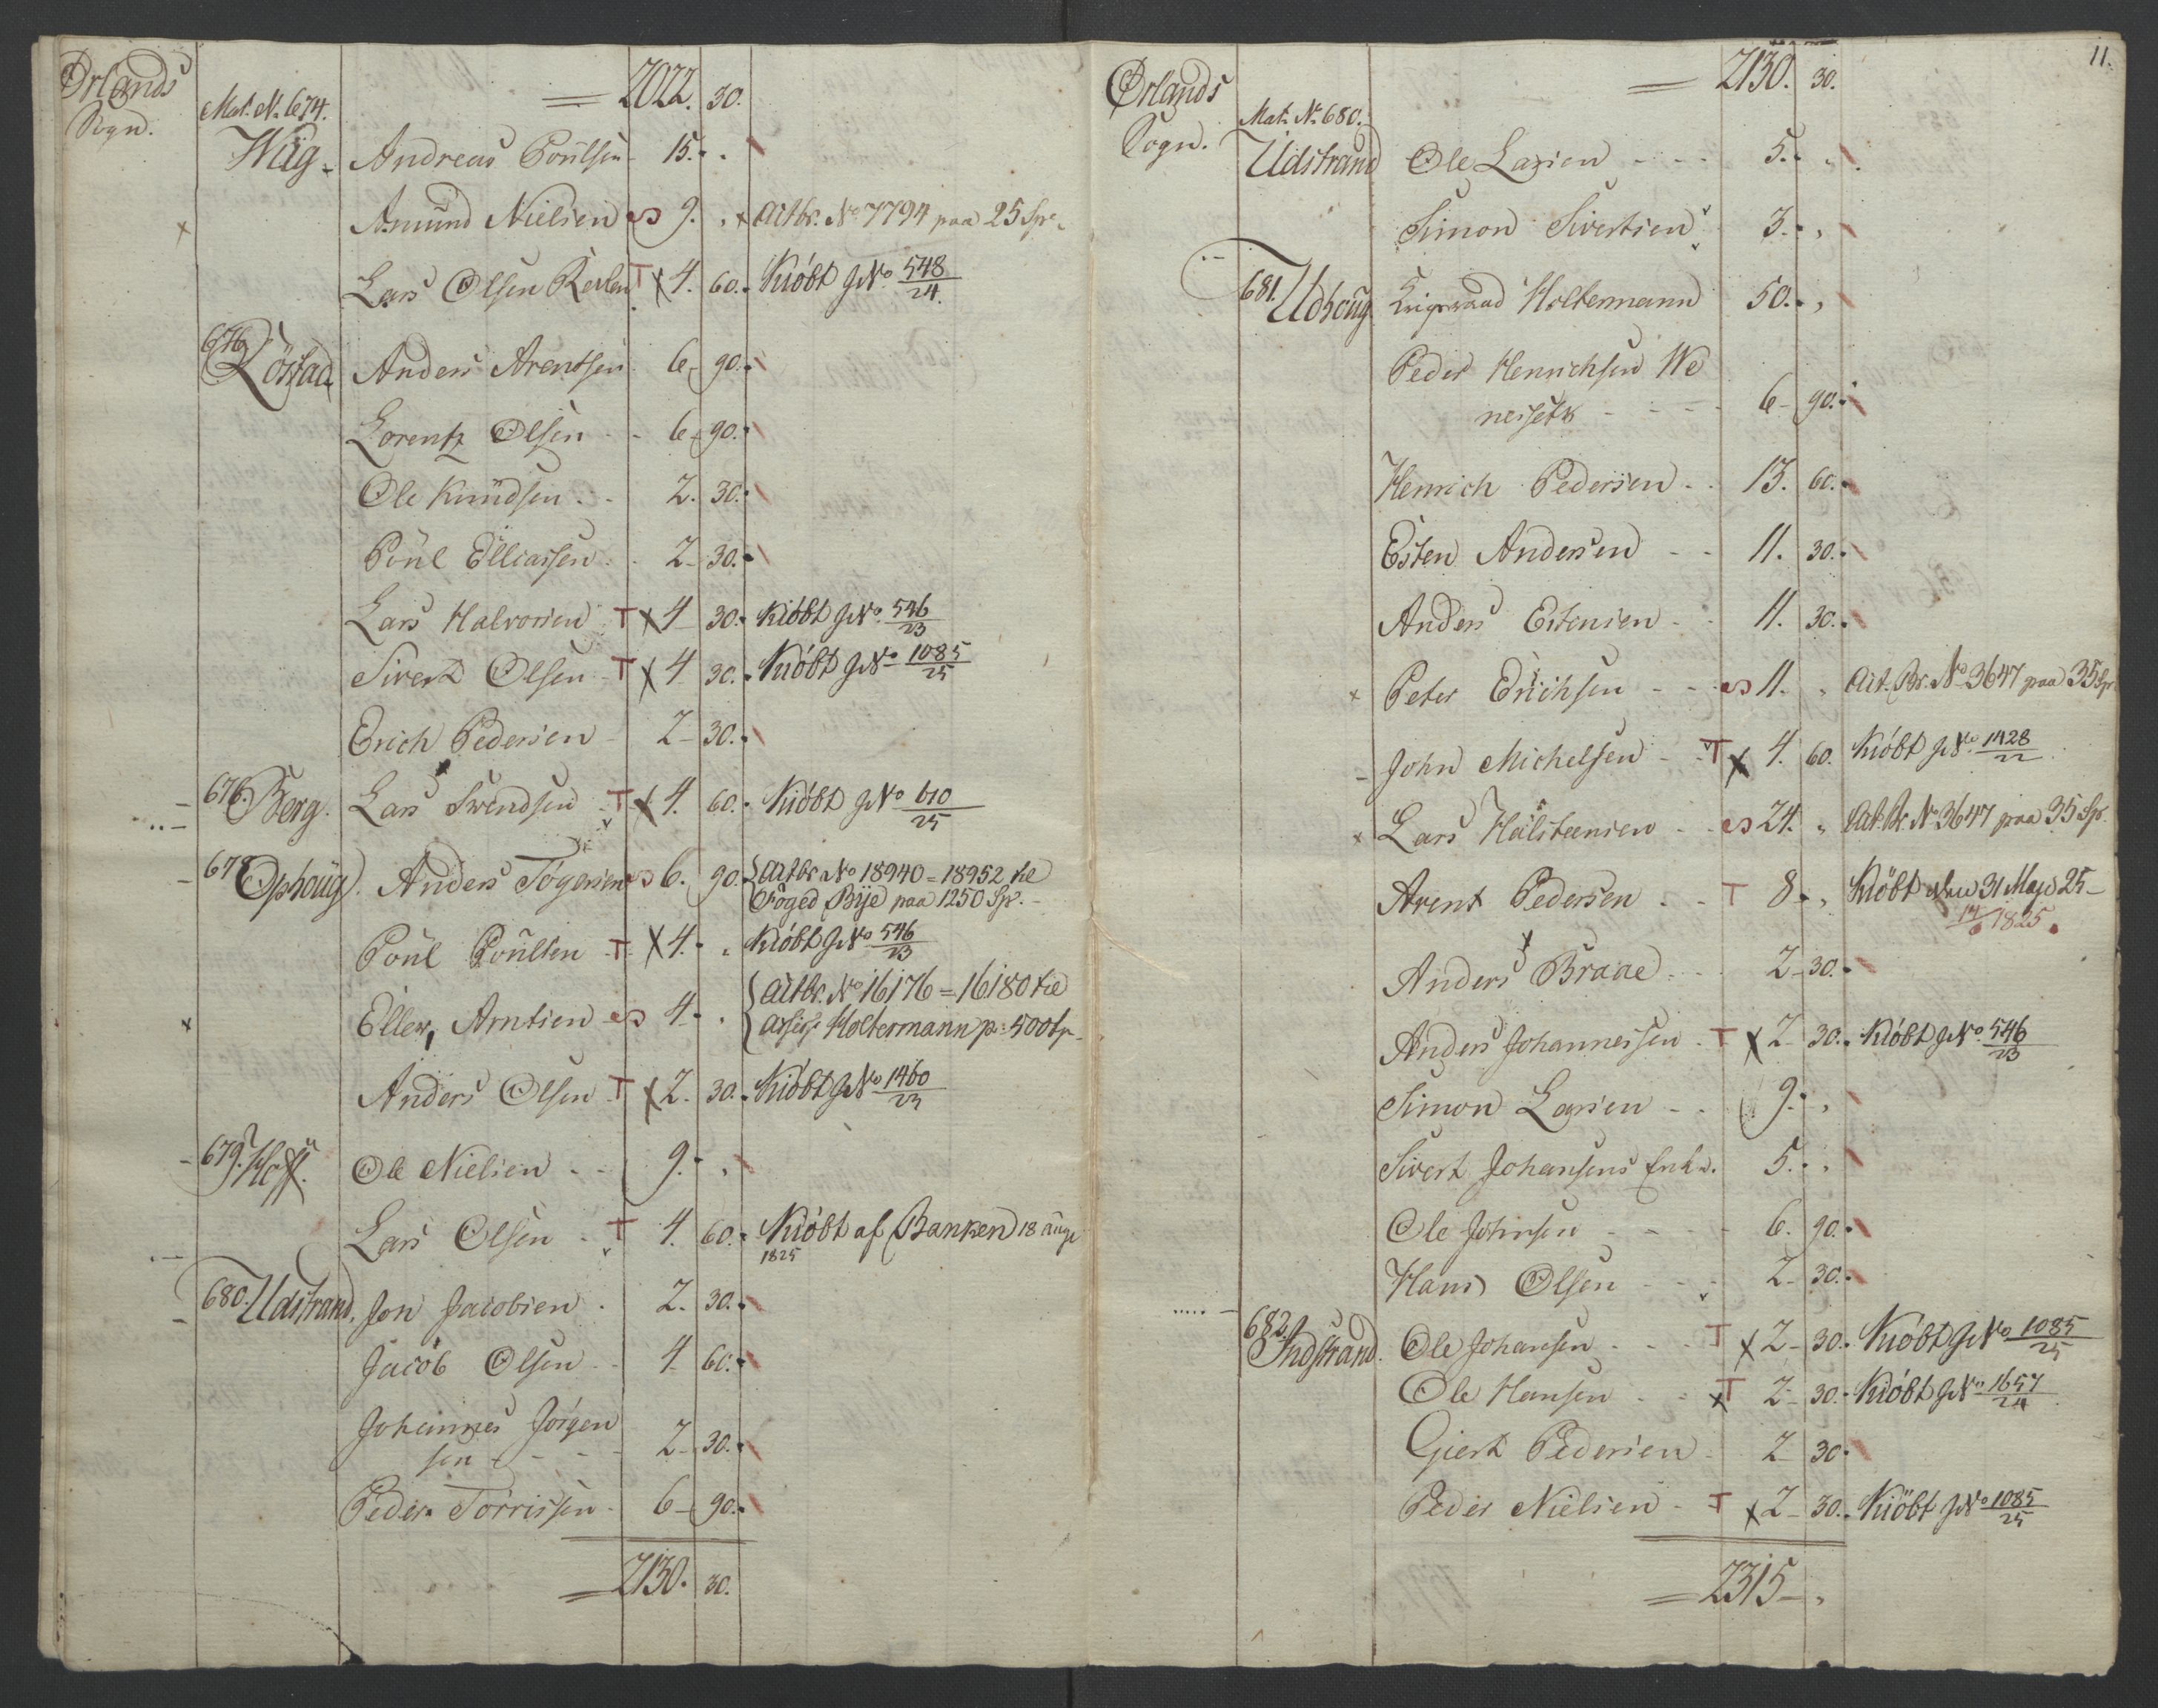 Ørlands
Sogn.
2022. 30.
Mat. N. 674.
Wüg. Andreas Poülsen 15. „
Amund Nielsen 9. „ x Actbr. No 7794 paa 25 Spe.
Lars Olsen T x 4. 60. Kióbt J. No. 548/24.
Röstad Anders Arentsen 6 90.
Lorentz Olsen 6 90.
Ole Knudsen 2. 30.
Poül Elliassen 2 30.
Lars Halvorsen T x 4 30. Kióbt J. No. 546/23
Sivert Olsen T x 4 30. Kióbt J. No 1085/25
Erich Pedersen 2 30.
676. Berg. Lars Swendsen T x 4. 60. Kióbt J. No 610/25
678 Ophoüg. Anders Togersen 6. 90. Actbr No 18940 = 18952 til
Foged Bye paa 1250 Sp.
Poül Poülsen T x 4. „ Kióbt J. No 546/23
Ellen Arntsen 4 „ Actbr. No 16176 = 16180 til
Holtermann p: 500 Sp
Anders Olsen T x 2. 30. Kióbt J. No 1460/23
679. Hoff. Ole Nielsen 9. „
Lars Olsen T 4. 60. Kióbt af Banken 18 aug
1825
680. Udstrand. Jon Jacobsen 2. 30.
Jacob Olsen 4 60.
Johannes Jörgen
sen 2 30.
Peder Torrissen 6 90.
2130. 30.
11.
Ørlands
Sogn.
2130. 30.
Mat. No 680.
Udstrand Ole Larsen 5. „
Simon Sivertsen 3. „
681. Udhoug Holtermann 50. „
Peder Henrichsen We
nessetk 6 90.
Henrich Pedersen 13. 60.
Esten Andersen 11. 30.
Anders Estensen 11. 30.
x Peter Erichsen 11. „ Act. Br. No 3647 paa 35 Sp
John Michelsen T x 4. 60. Kióbt J. No. 1428/22
x Lars Halsteensen 24. „ Act. Br. No 3647 paa 35 Sp.
Arent Pedersen T 8. „ Kióbt den 31 May 25
14/6 1825.
Anders Braae 2 30.
Anders Johannessen T x 2 30. Kióbt J. No. 546/23
Simon Larsen 9. „
Sivert Johansens Enke. 5. „
Ole Johnsen 6. 90.
Hans Olsen 2 30.
682. Indstrand. Ole Johansen T x 2 30. Kióbt J. No 1085/25
Ole Hansen x T 2 30. Kióbt J. No. 1657/24
Giert Pedersen 2 30
Peder Nielsen T x 2 30. Kióbt J. No 1085/25
2315 „